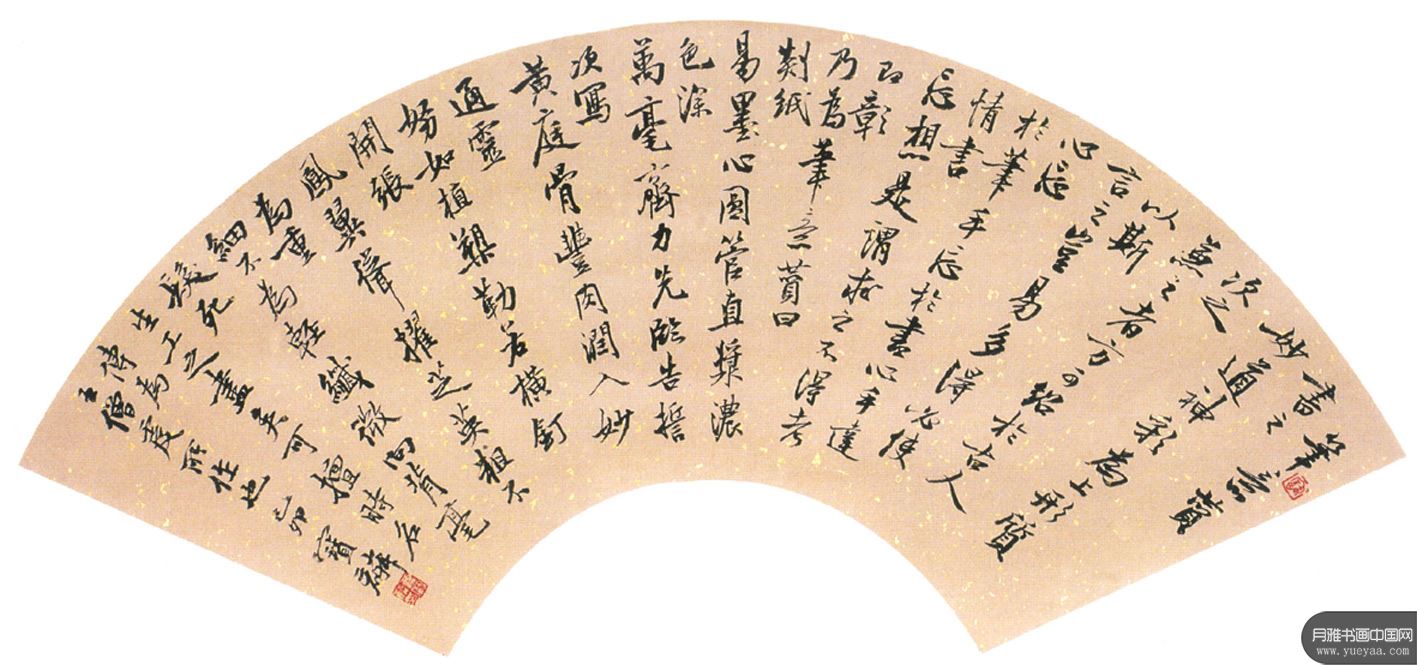 筆意贊
書之
妙道神彩為上形質
次之
兼之者方可紹於古人
以斯
言之豈易多得必使
心忘
於筆手忘於書心手達
情書
忘想是謂求之不得考
即彰
乃為
筆意贊曰
剡紙
易墨心圓管直漿濃
色深
萬毫齊力先臨告誓
次寫
黃庭骨豐肉潤入妙
通靈
努如植槊勒若橫釘
開張
鳳翼聳擢芝英粗不
為重
細不為輕纖微向背毫
髮死
生工之盡矣可擅時名
傳為
王僧虔所作也己卯寶麟
月雅书画中国网
www.yueyaa.com